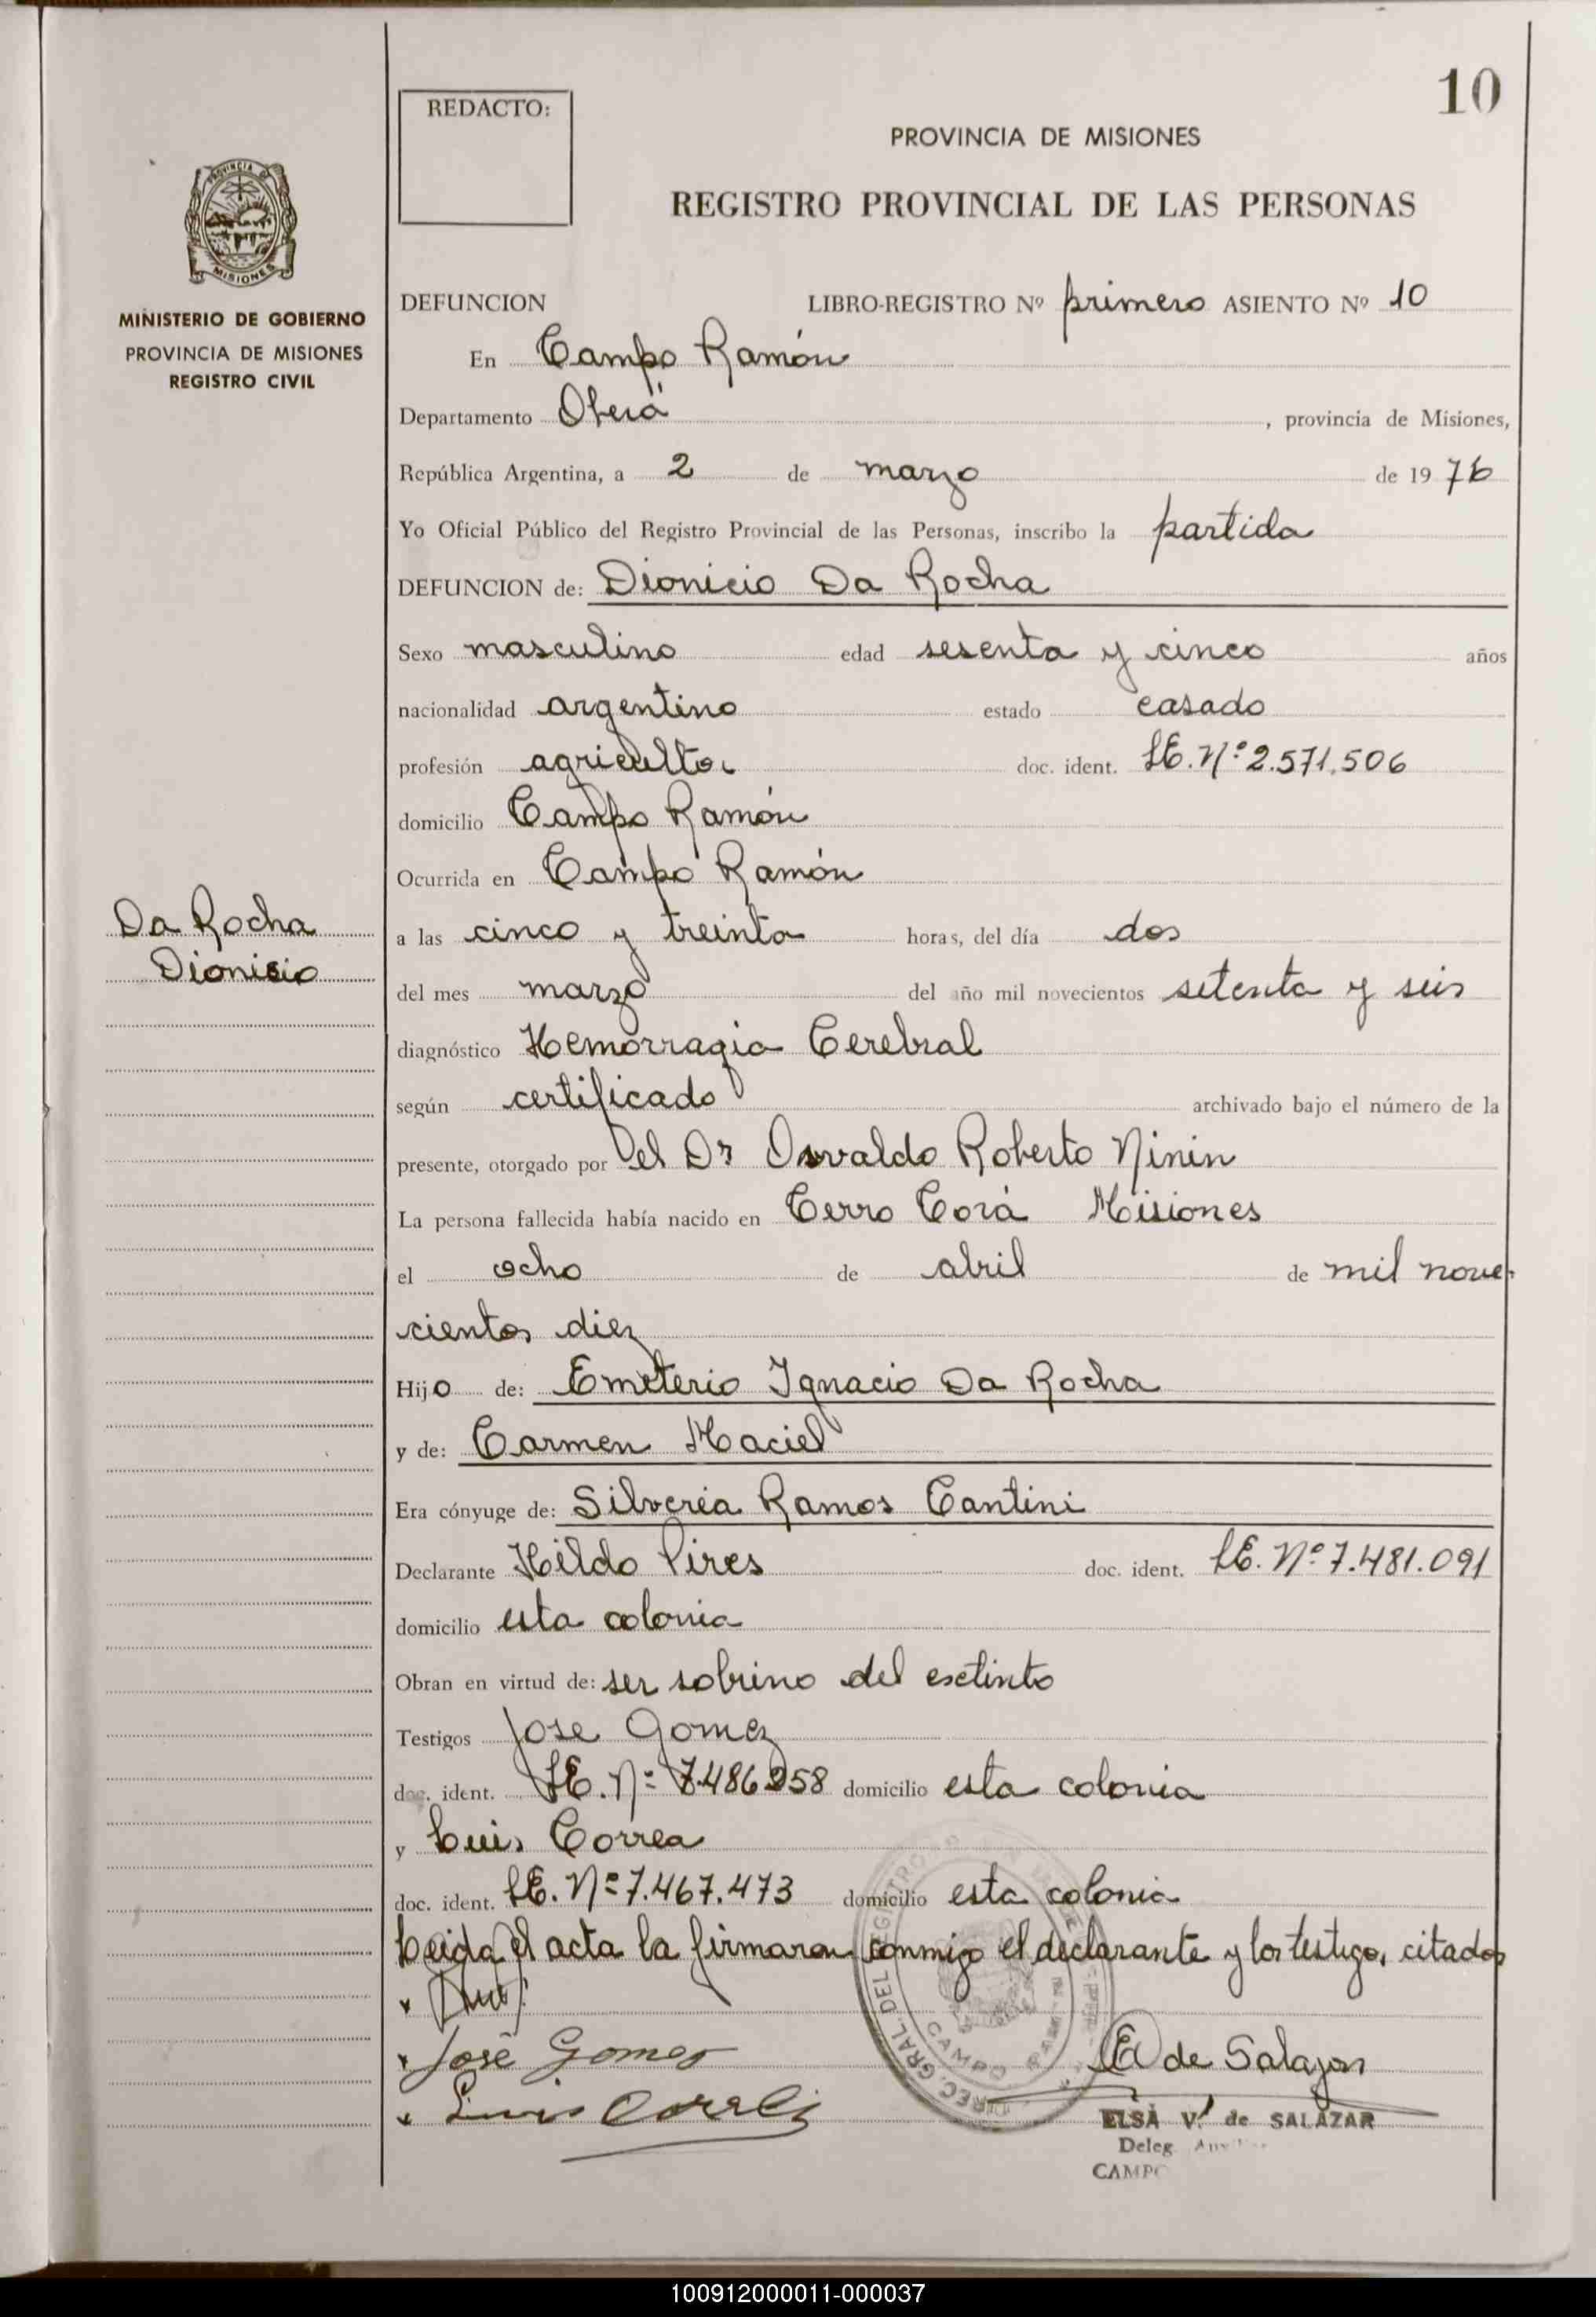 10
REDACTO:
PROVINCIA DE MISIONES
REGISTRO PROVINCIAL DE LAS PERSONAS
PROVINCIA DE
MISIONES
MINISTERIO DE GOBIERNO
PROVINCIA DE MISIONES
REGISTRO CIVIL
DEFUNCION LIBRO-REGISTRO Nº primero ASIENTO Nº 10
En Campo Ramón
Departamento Oberá , provincia de Misiones,
República Argentina, a 2 de marzo de 19 76
Yo Oficial Público del Registro Provincial de las Personas, inscribo la partida
DEFUNCION de: Dionicio Da Rocha
Sexo masculino edad sesenta y cinco años
nacionalidad argentino estado casado
profesión agricultor doc. ident. LE. Nº 2.571.506
domicilio Campo Ramón
Ocurrida en Campo Ramón
Da Rocha
Dionisio
a las cinco y treinta horas, del día dos
del mes marzo del año mil novecientos setenta y seis
diagnóstico Hemorragia Cerebral
según certificado archivado bajo el número de la
presente, otorgado por el Dr Osvaldo Roberto Ninin
La persona fallecida había nacido en Cerro Corá Misiones
el ocho de abril de mil nove
cientos diez
Hijo de: Emeterio Ignacio Da Rocha
y de: Carmen Maciel
Era cónyuge de: Silveria Ramos Cantini
Declarante Hildo Pires doc. ident. LE. Nº 7.481.091
domicilio esta colonia
Obran en virtud de: ser sobrino del esctinto
Testigos Jose Gomez
doc. ident. LE. Nº domicilio esta colonia
y Luis Correa
doc. ident. LE. Nº 7.467.473 domicilio esta colonia
Leida el acta la firmaron conmigo el declarante y los testigos citados
José Gomes
Luis
E de Salazar
DIREC. GRAL. DEL REGISTRO
CAMPO RAMON
ELSA V. de SALAZAR
Deleg.
CAMPO
100912000011-000037